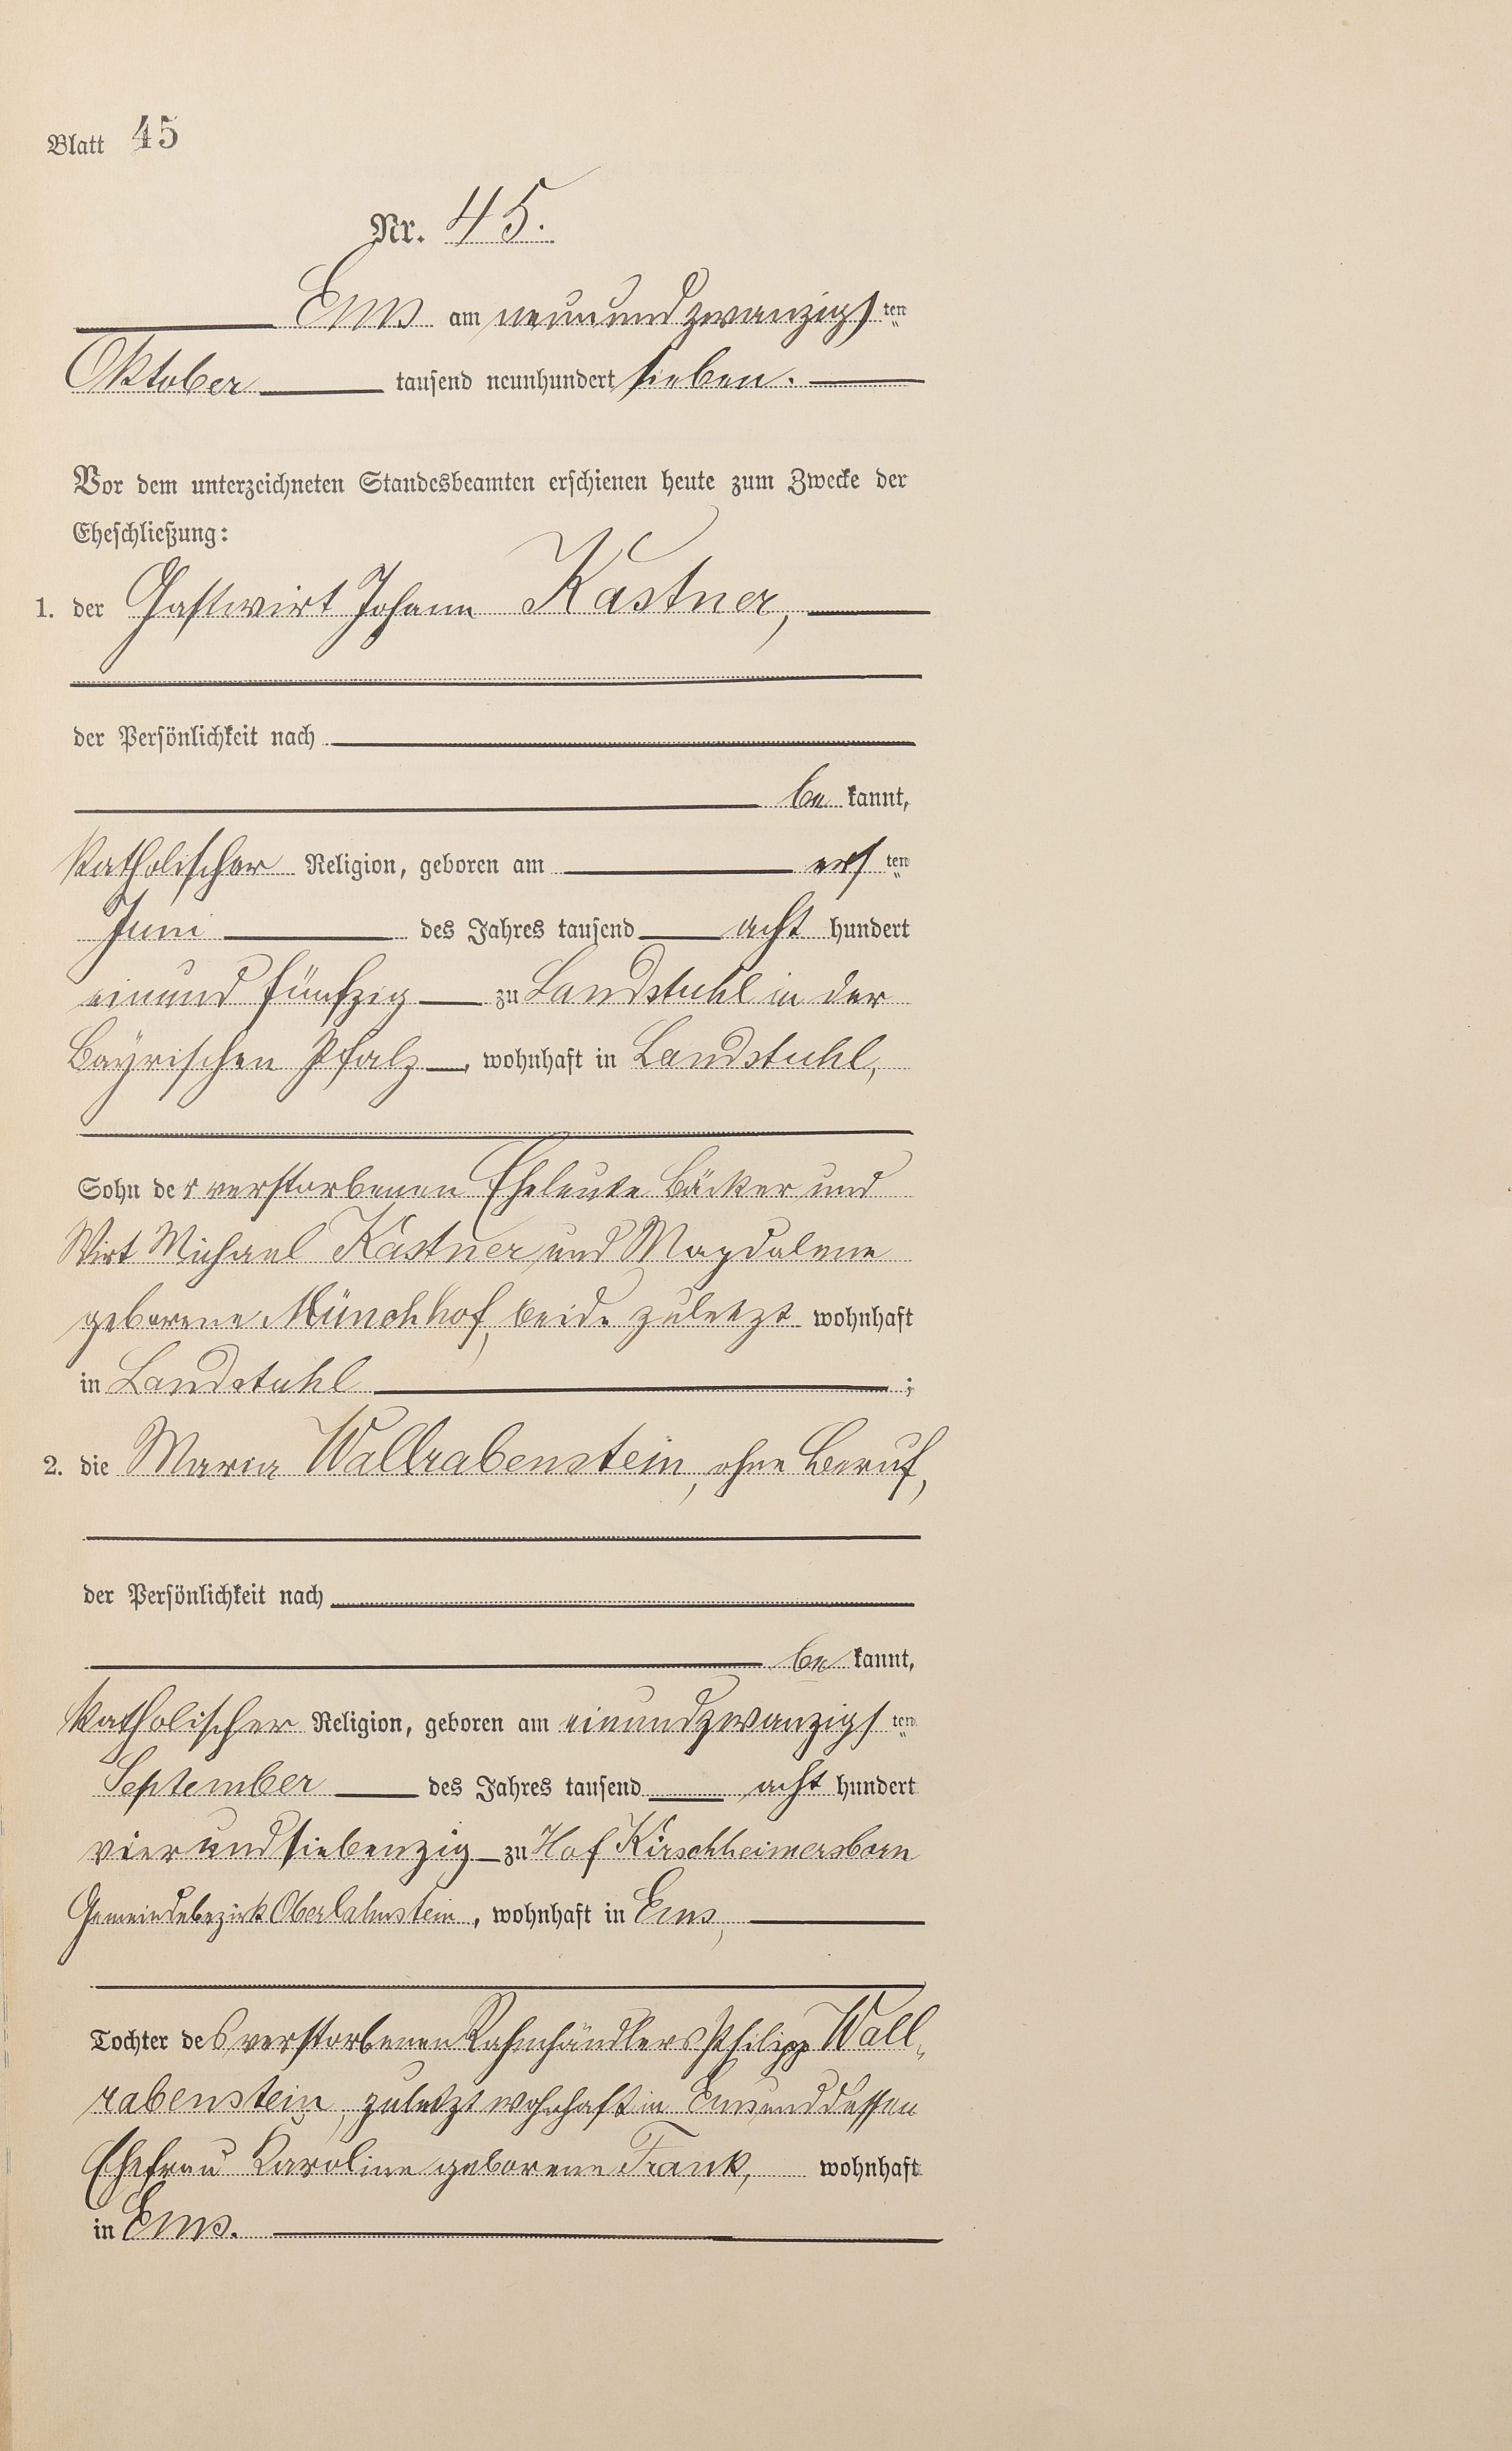 Blatt 45
Nr. 45.
Ems am neunundzwanzigsten
Oktober tausend neunhundert sieben.
Vor dem unterzeichneten Standesbeamten erschienen heute zum Zwecke der
Eheschließung:
1. der Gastwirt Johann Kästner,
der Persönlichkeit nach
be kannt,
katholischer Religion, geboren am ersten
Juni des Jahres tausend acht hundert
einund fünfzig zu Landstuhl in der
Bayrischen Pfalz, wohnhaft in Landstuhl,
Sohn der verstorbenen Eheleute Bäcker und
Wirt Michael Kästner und Magdalene
geborene Münchhof, beide zuletzt wohnhaft
in Landstuhl ;
2. die Maria Wallrabenstein, ohne Beruf,
der Persönlichkeit nach
be kannt,
katholischer Religion, geboren am einundzwanzigsten
September des Jahres tausend acht hundert
vierundsiebenzig zu Hof Kirschheimersborn
Gemeindebezirk Oberlahnstein, wohnhaft in Ems,
Tochter des verstorbenen Rahmhändlers Philipp Wall„
rabenstein, zuletzt wohnhaft in Ems und dessen
Ehefrau Karoline geborene Frank, wohnhaft
in Ems.